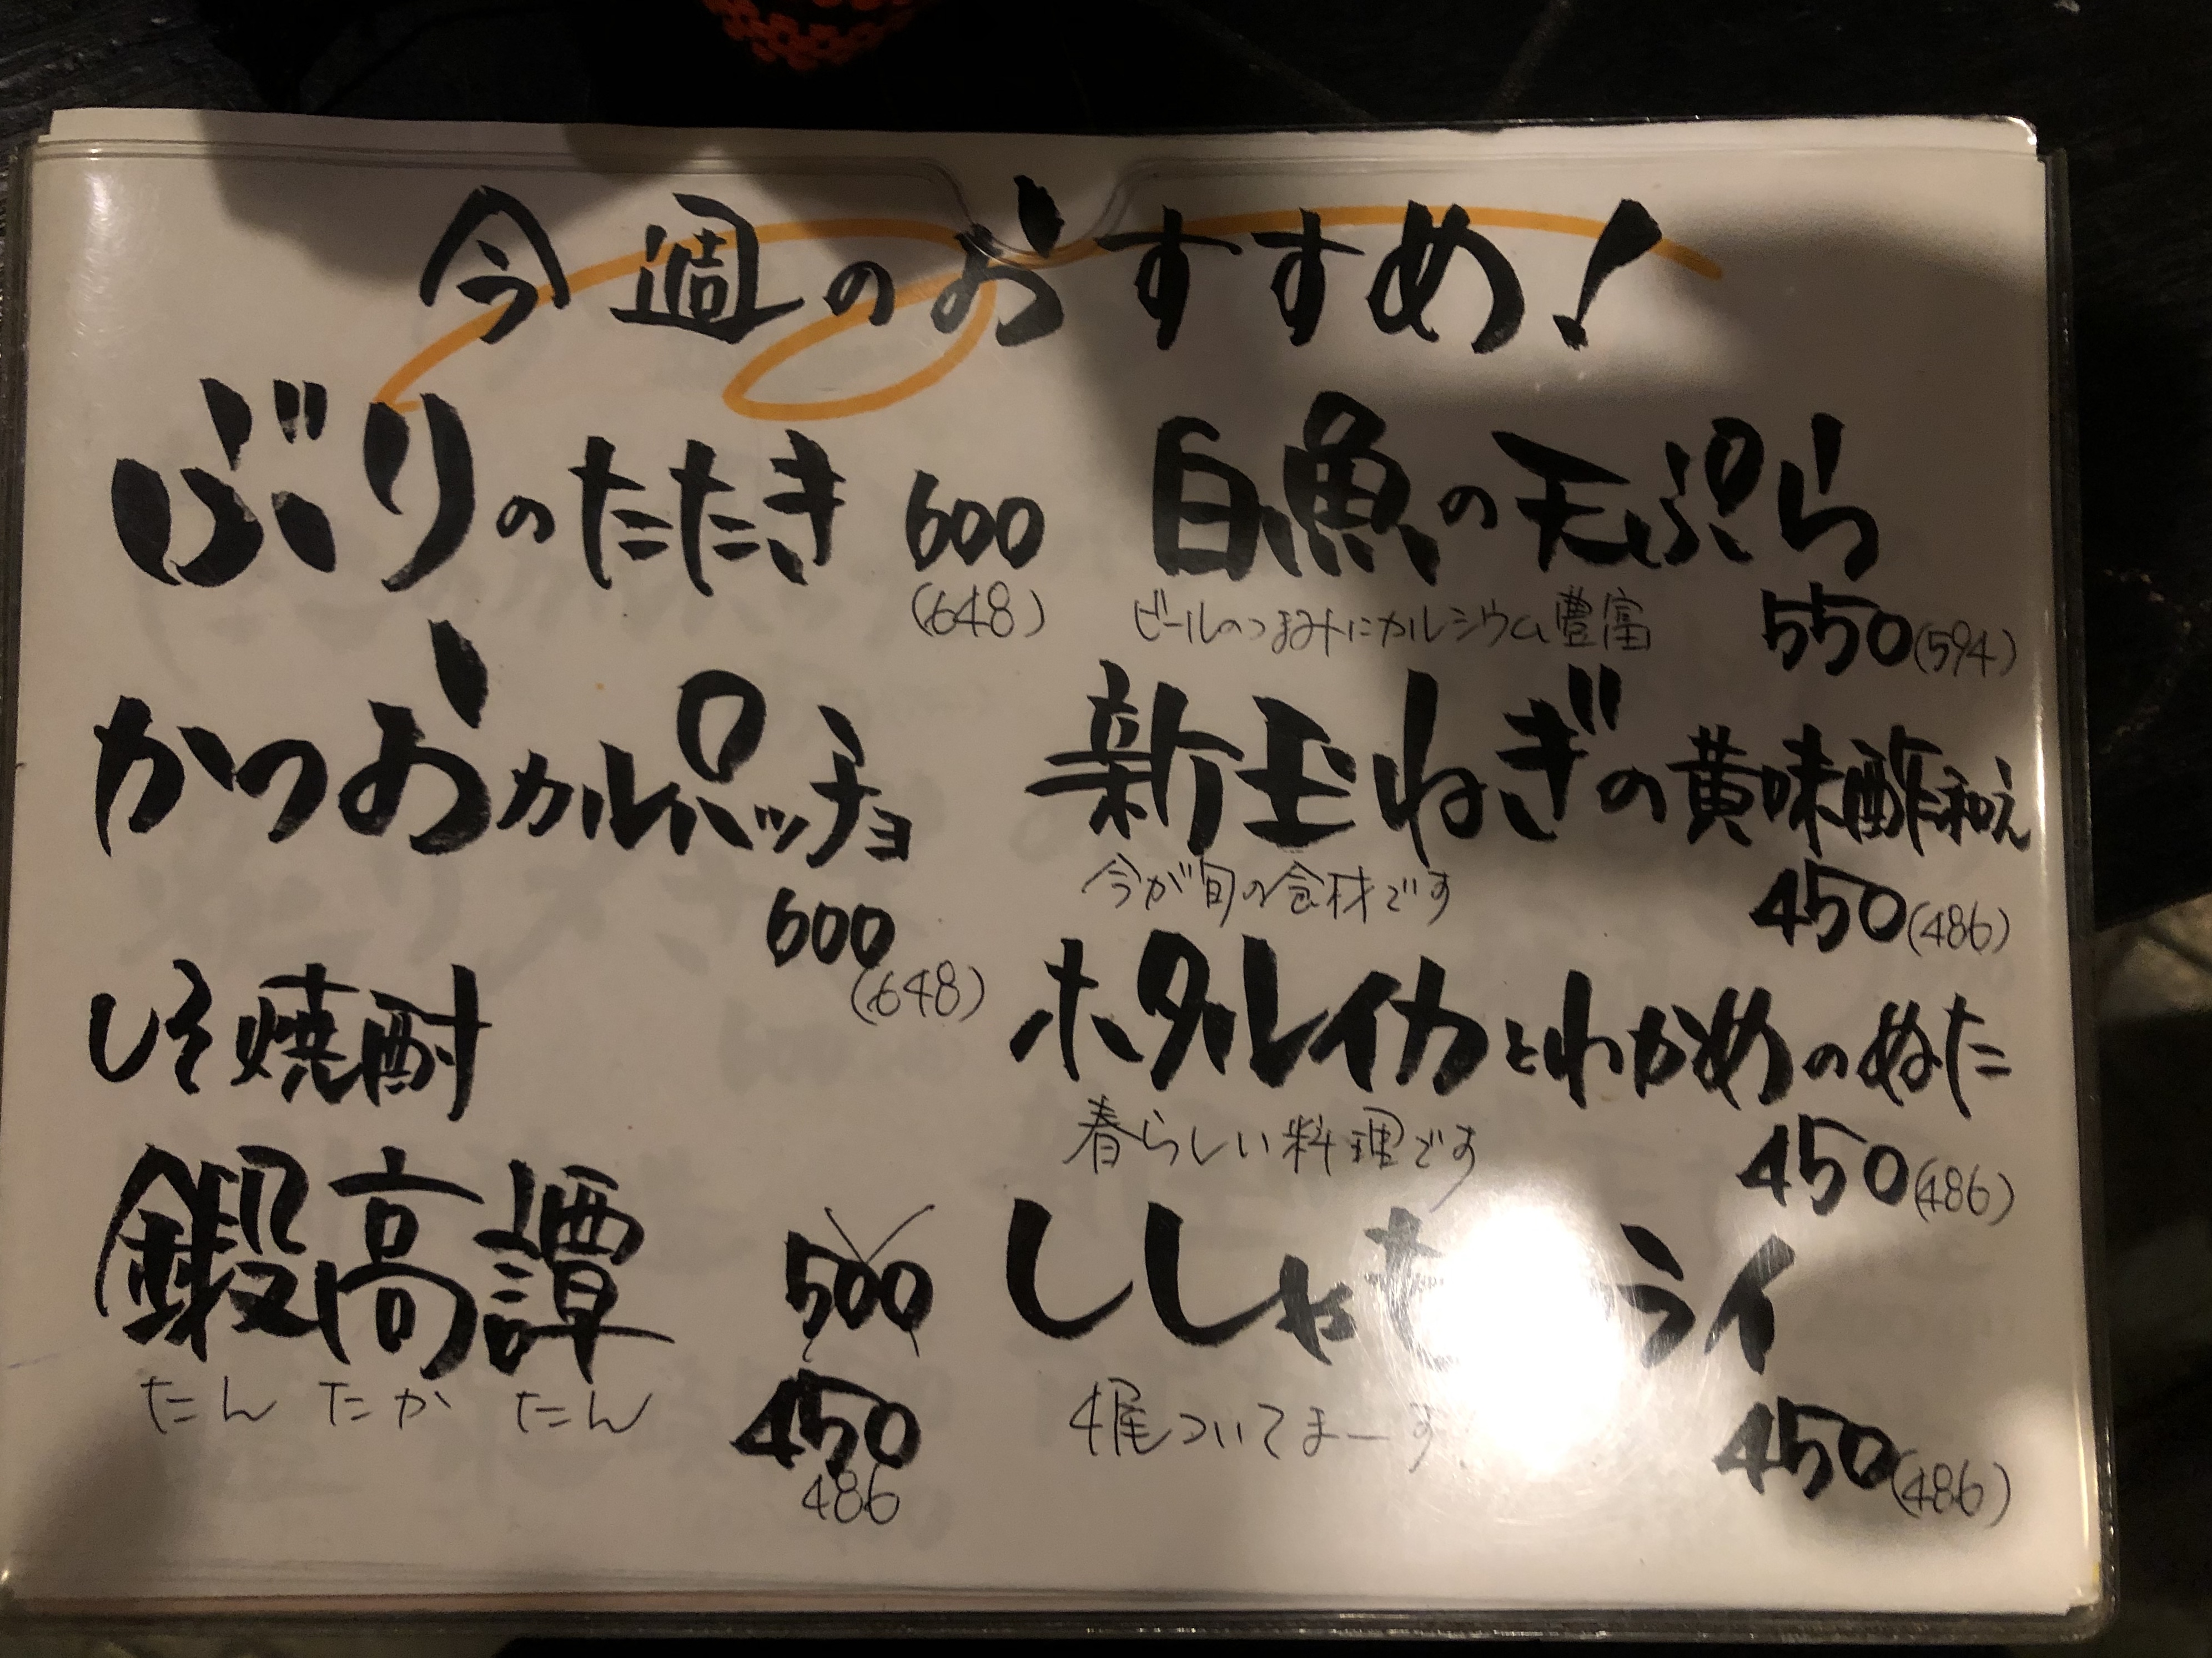 今週のおすすめ!
ぶりのたたき 600
(648)
かつおカルパッチョ
600
(648)
しそ焼酎
鍛高譚 500
たん たか たん
450
486
白魚の天ぷら
ビールのつまみにカルシウム豊富 550(594)
新玉ねぎの黄味酢和え
今が旬の食材です 450(486)
ホタルイカとわかめのぬた
春らしい料理です 450(486)
ししゃも ライ
4尾ついてまーす 450(486)